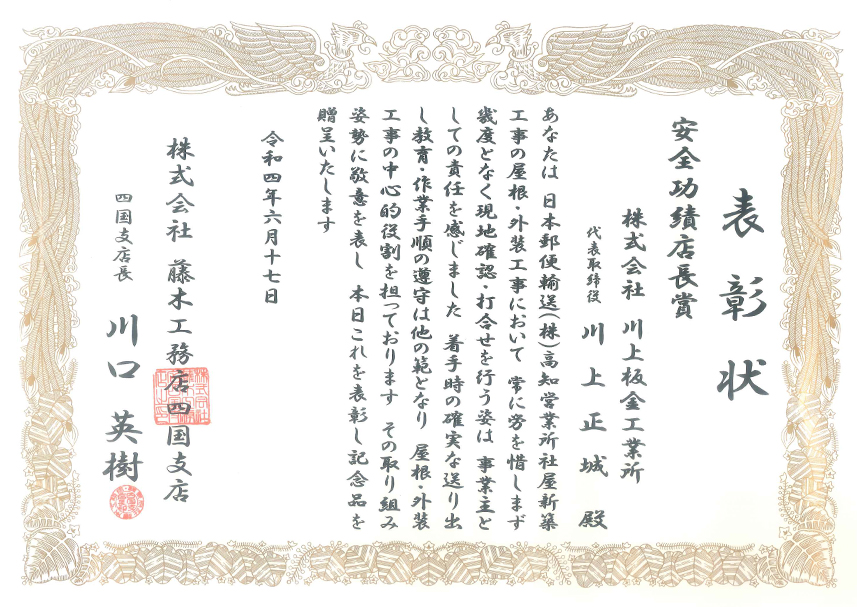 表彰状
安全功績店長賞
株式会社 川上板金工業所
代表取締役 川上正城 殿
あなたは 日本郵便輸送(株)高知営業所社屋新築
工事の屋根・外装工事において 常に労を惜しまず
幾度となく現地確認・打合せを行う姿は 事業主と
しての責任を感じました 着手時の確実な送り出
し教育・作業手順の遵守は他の範となり 屋根・外装
工事の中心的役割を担っております その取り組み
姿勢に敬意を表し 本日これを表彰し記念品を
贈呈いたします
令和四年六月十七日
株式会社 藤木工務店四国支店
四国支店長 川口英樹